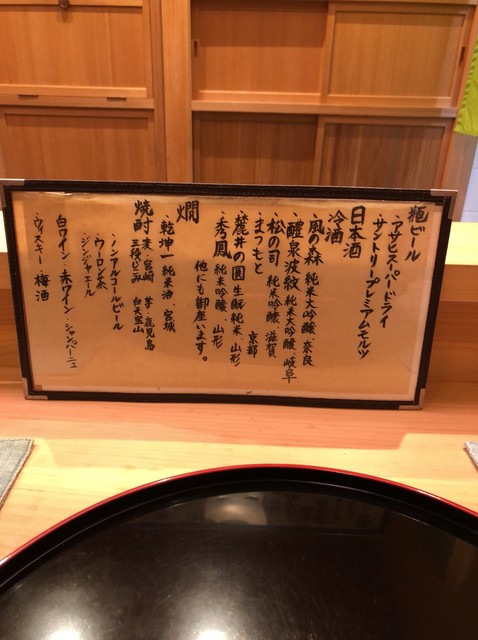 瓶ビール
・アサヒスーパードライ
・サントリープレミアムモルツ
日本酒
冷酒
・風の森 純米大吟醸、奈良
・醴泉波紋 純米大吟醸、岐阜
・松の司 純米吟醸、滋賀
・まつもと 京都
・麓井の圓 生酛純米、山形
・秀鳳 純米吟醸、山形
他にも御座います。
燗
・乾坤一 純米酒、宮城
焼酎 麦、宮崎 芋、鹿児島
・ノンアルコールビール
・ウーロン茶
・ジンジャエール
白ワイン・赤ワイン・シャンペーニュ
・ウィスキー・梅酒